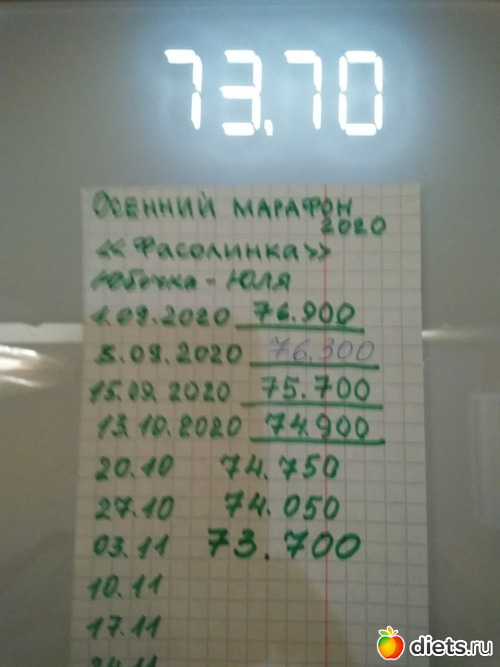 73.70
ОСЕННИЙ МАРАФОН
2020
«Фасолинка»
Юбочка - Юля
1.09.2020 76.900
8.09.2020 76.300
15.09.2020 75.700
13.10.2020 74.900
20.10 74.750
27.10 74.050
03.11 73.700
10.11
17.11
24.11
diets.ru